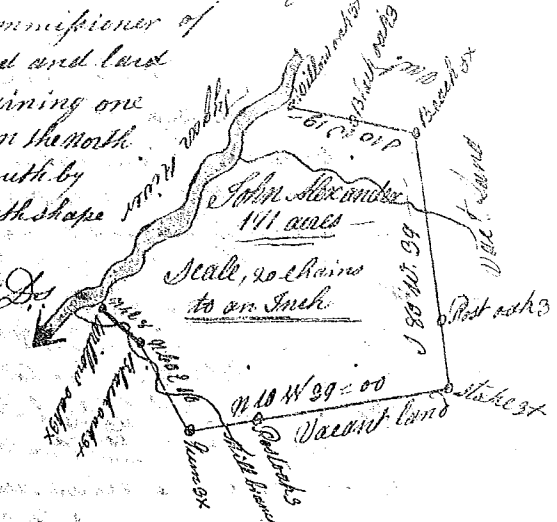 ommissioner of
d and laid
ining one
n the north
uth by
th shape
Tyger River
John Alexander
191 acres
Scale, 20 chains
to an Inch
Willow oak 3x
Black oak 3
Beach 3x
Vact Land
S 80 W. 39
Post oak 3
Stake 3x
N 10 W 39=00
Vacant land
Post oak 3
Mill branch
Gum 3x
Black oak 3x
Willow oak 3x